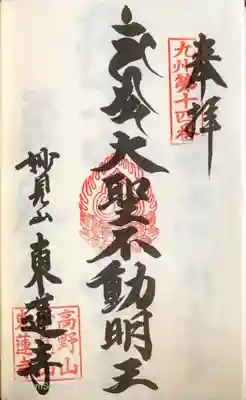 奉拝
九州第十四番
大聖不動明王
妙見山 東蓮寺
高野山
東蓮寺